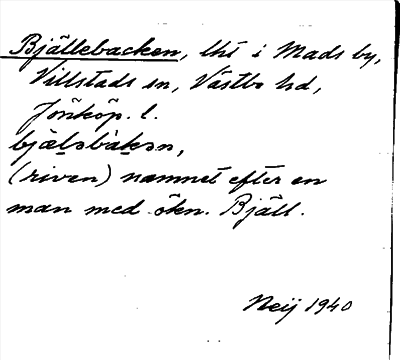 Bjällebacken, lht i Mads by,
Villstads sn, Västbo hd,
Jönköp. l.
bjæl̥əbàkən,
(riven) namnet efter en
man med ökn. Bjäll.
Neij 1940